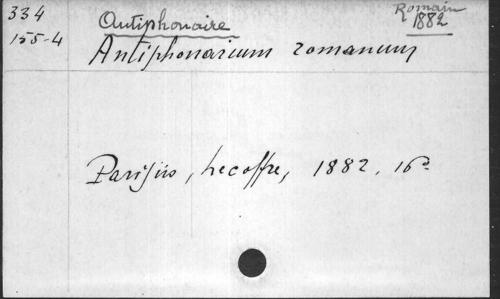 334
155-4
Antiphonaire
Romain
1882
Antiphonarium romanum
Parisiis, Lecoffre, 1882, 16°